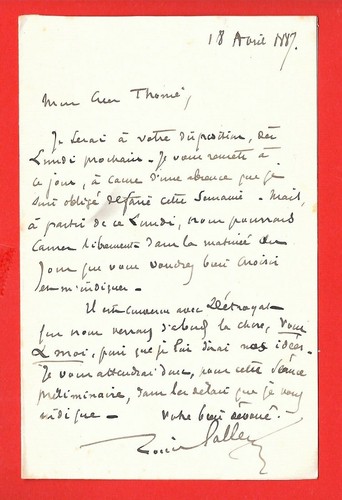 18 Avril 1887.
Mon cher Thomé,
Je serai à votre disposition, dès
Lundi prochain. Je vous remets à
ce jour, à cause d'une absence que je
suis obligé de faire cette semaine. Mais,
à partir de ce Lundi, nous pourrons
causer librement dans la matinée du
jour que vous voudrez bien choisir
en m'indiquer.
Il est convenu avec Détroyat
que nous verrons d'abord la chose, vous
& moi, puis que je lui dirai nos idées.
Je vous attendrai donc, pour cette séance
préliminaire, dans les délais que je vous
indique — Votre bien dévoué.
Louis Gallet